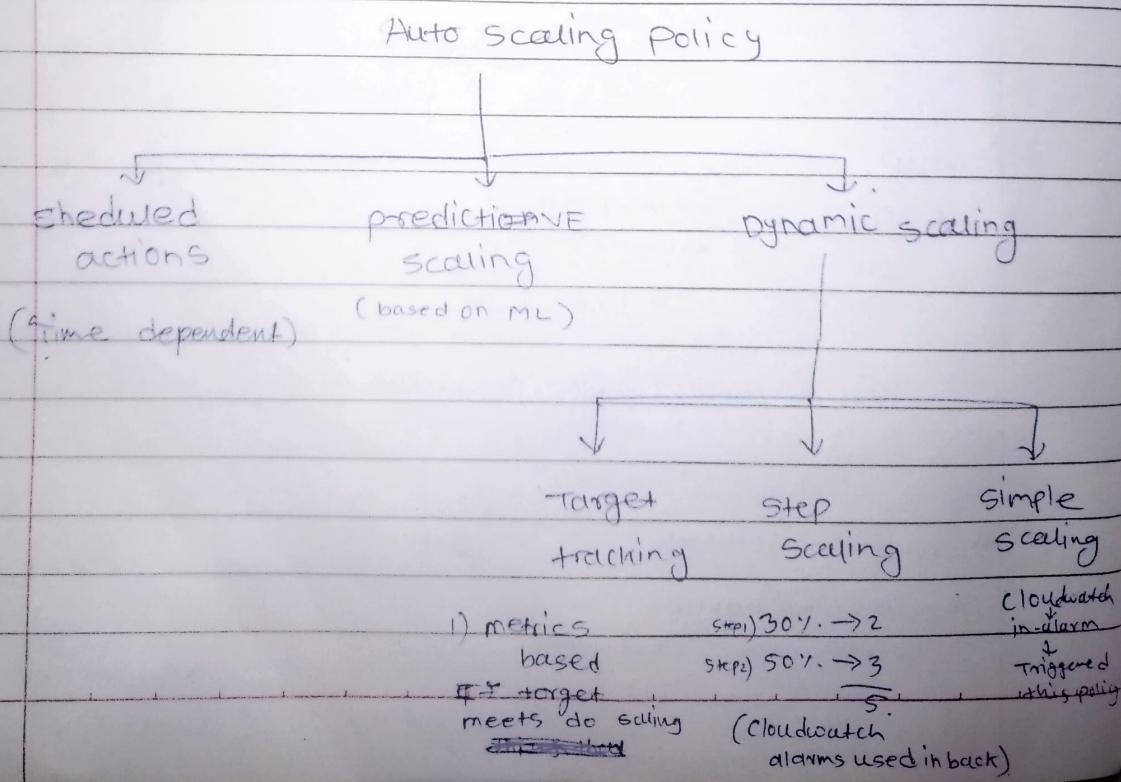 Auto Scaling Policy
sheduled
actions
(time dependent)
predictiveVE
scaling
(based on ML)
Dynamic scaling
Target
tracking
1) metrics
based
If target
meets do scling
Step
Scaling
Step1) 30% → 2
Step2) 50% → 3
5
(Cloudwatch
alarms used in back)
Simple
scaling
Cloudwatch
in-alarm
Triggered
this policy